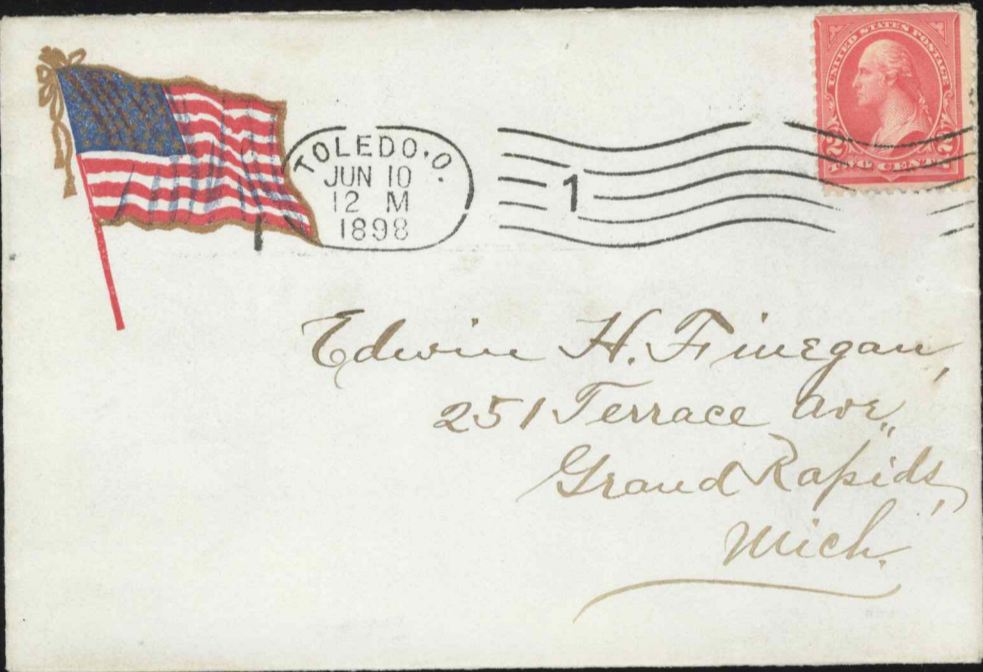 TOLEDO, O.
JUN 10
12 M
1898
1
UNITED STATES POSTAGE
2 2
TWO CENTS
Edwin H. Finegan,
251 Terrace Ave,
Grand Rapids,
Mich.